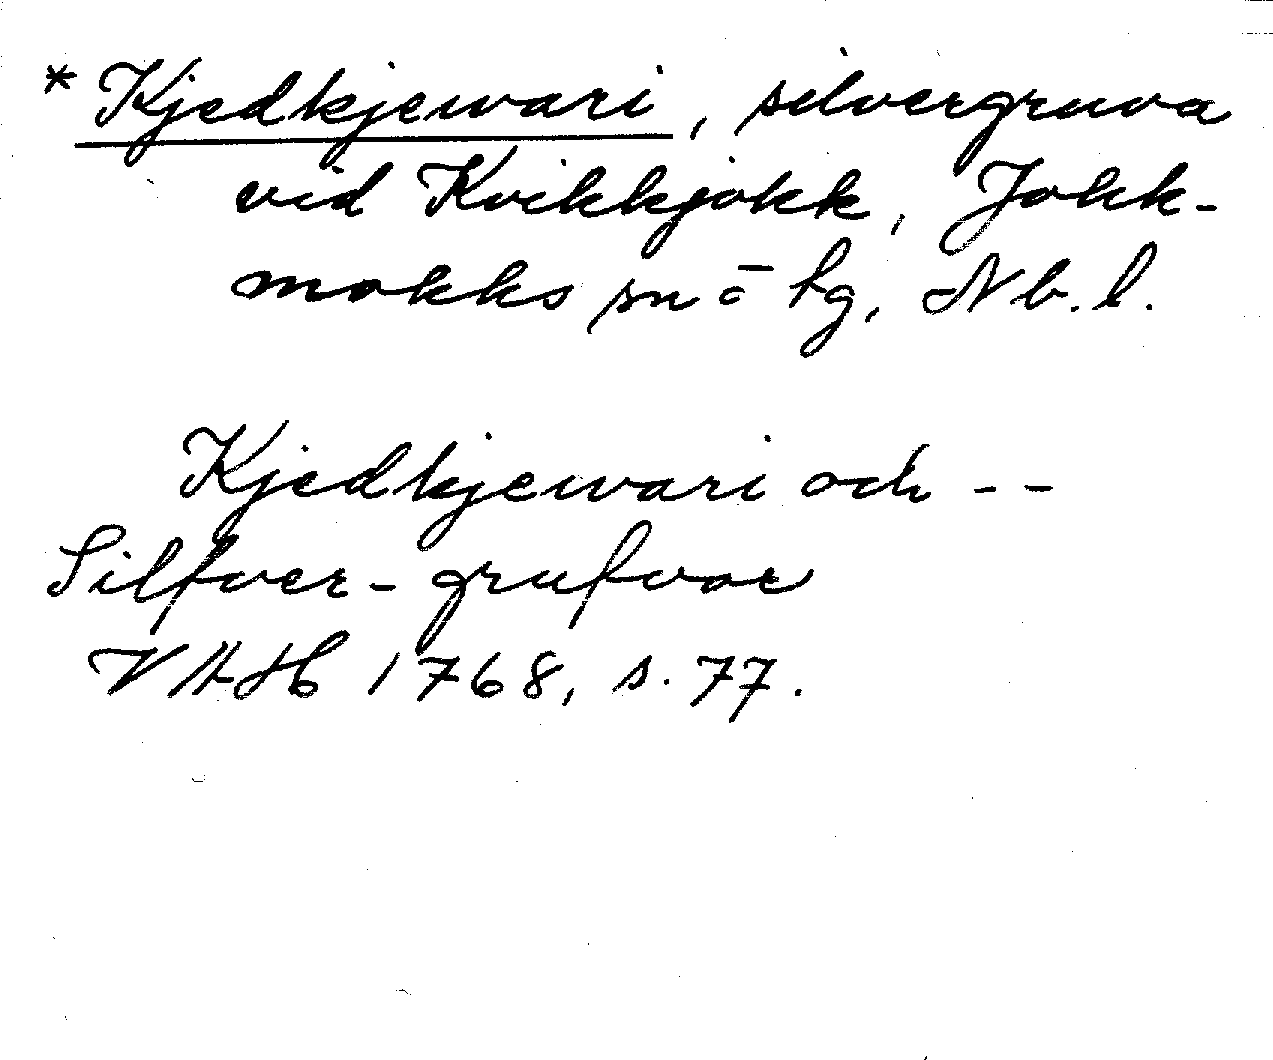 * Kjedkjewari, silvergruva
vid Kvikkjokk, Jokk-
mokks sn o hg, Nb. l.
Kjedkjewari och - -
Silfver-grufvor
VAH 1768, s. 77.